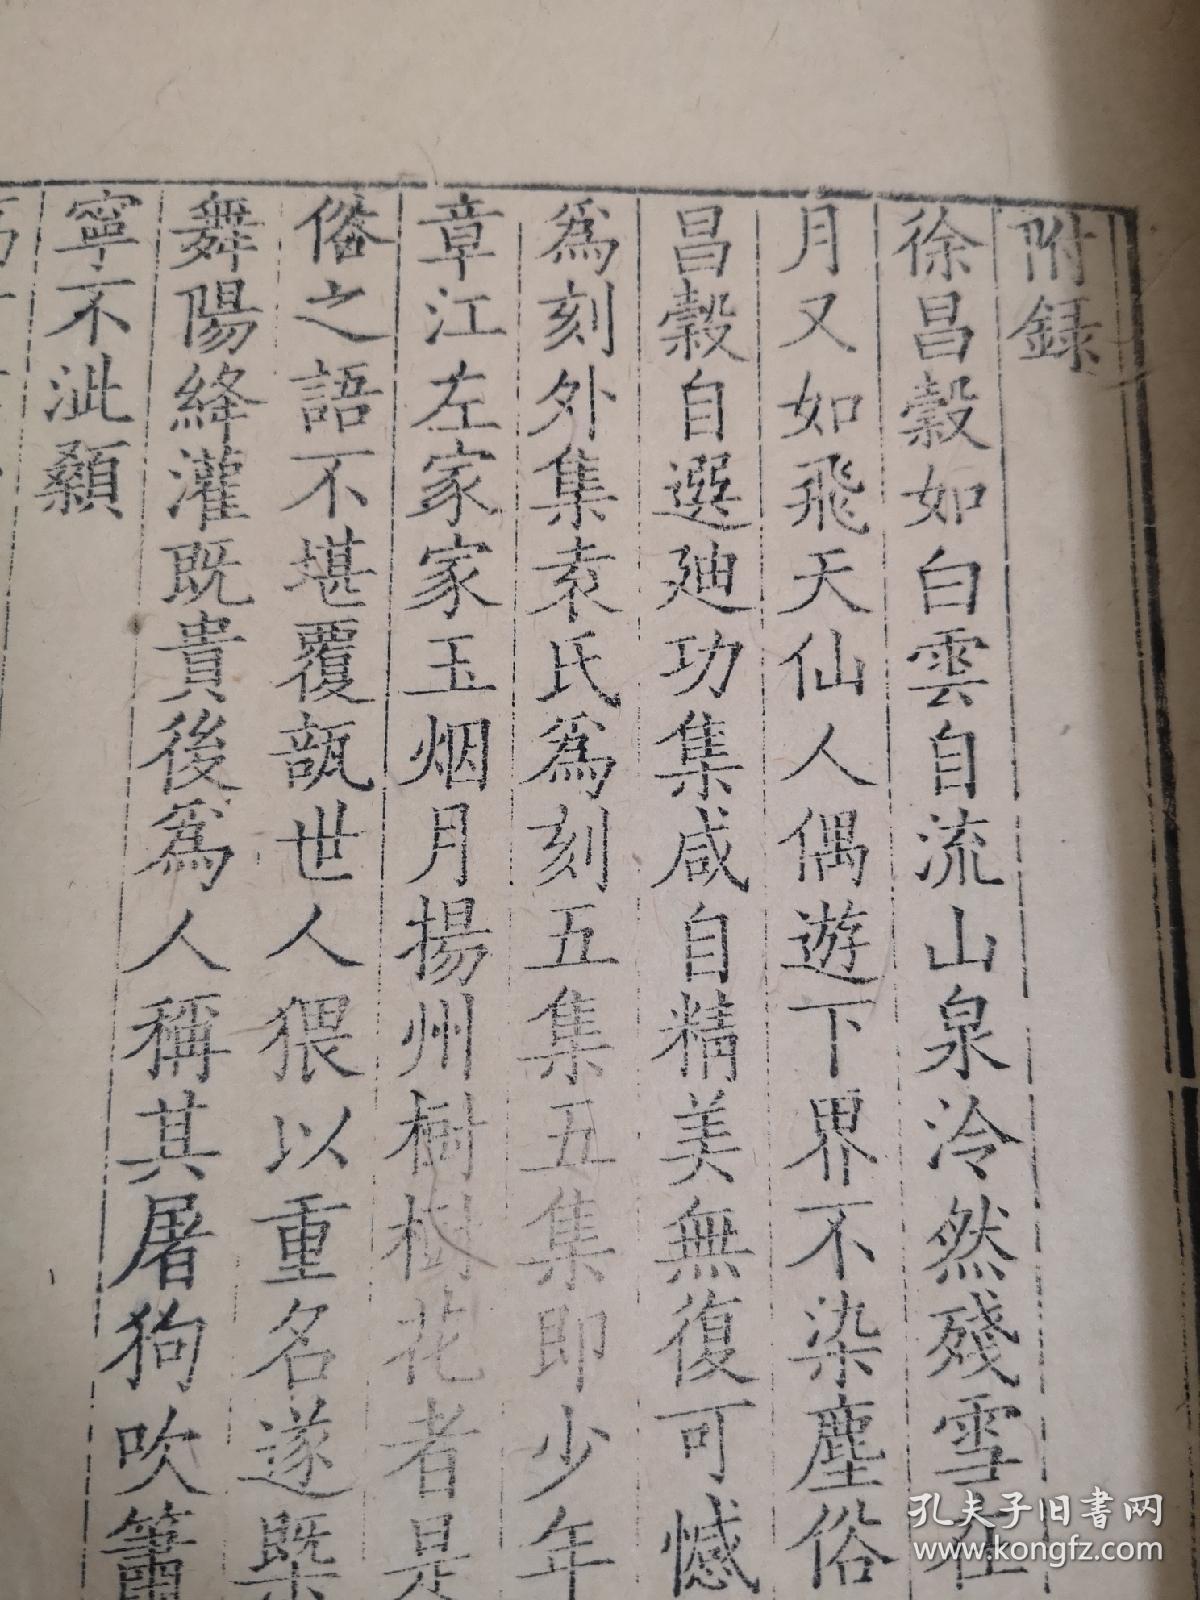 附録
徐昌穀如白雲自流山泉冷然殘雪在
月又如飛天仙人偶遊下界不染塵俗
昌穀自選廸功集咸自精美無復可憾
爲刻外集袁氏爲刻五集五集即少年
章江左家家玉烟月揚州樹樹花者是
俗之語不堪覆瓿世人猥以重名遂槩
舞陽絳灌既貴後爲人稱其屠狗吹簫
寧不泚顙
孔夫子旧書网
www.kongfz.com